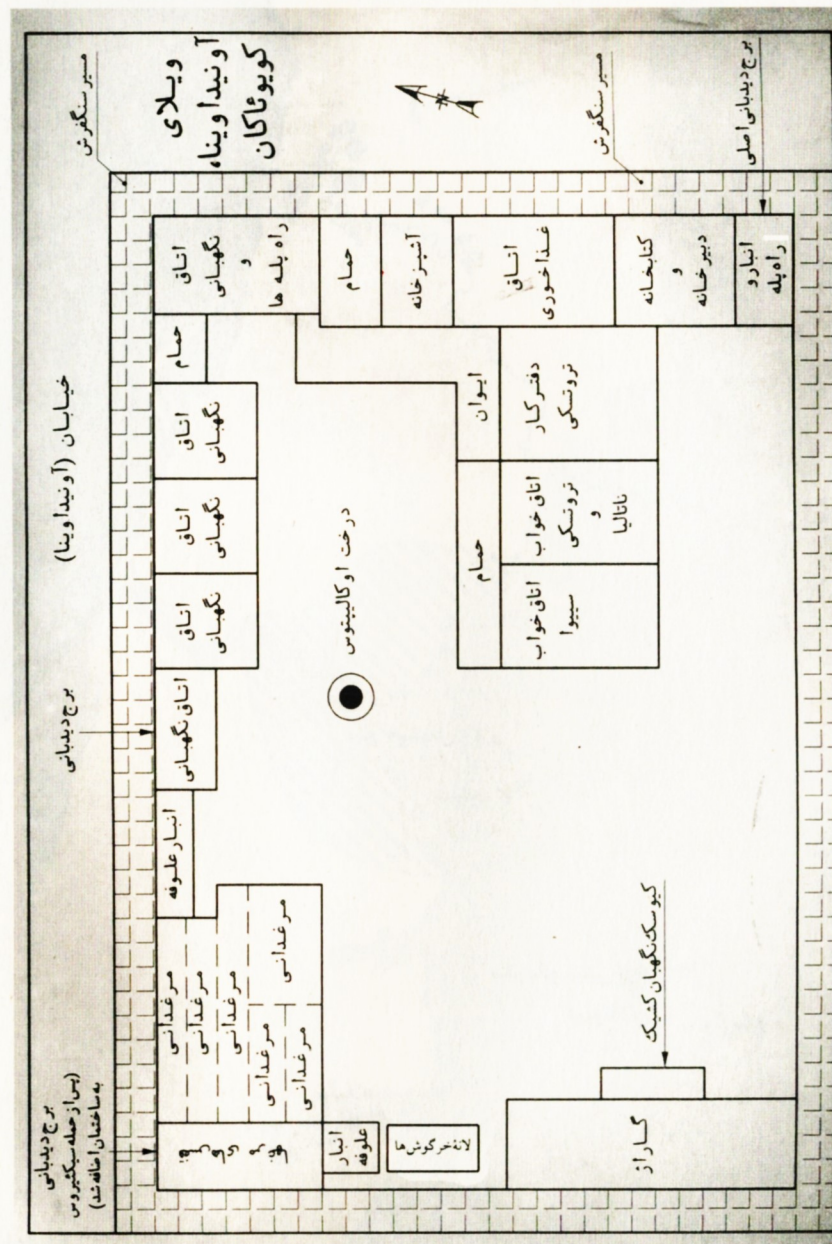 ویلای
آونیداوینا،
کویوئاکان
مسیر سنگفرش
مسیر سنگفرش
برج دیدبانی اصلی
خیابان (آونیداوینا)
برج دیدبانی
برج دیدبانی
(پس از حمله سیکئیروس
به ساختمان اضافه شد)
اتاق
نگهبانی
و
راه پله ها
حمام
آشپزخانه
اتاق
غذاخوری
دبیرخانه
و
کتابخانه
انبار و
راه پله
حمام
اتاق
نگهبانی
اتاق
نگهبانی
اتاق
نگهبانی
اتاق نگهبانی
انبار علوفه
ایوان
دفتر کار
تروتسکی
حمام
اتاق خواب
تروتسکی
و
ناتالیا
اتاق خواب
سییوا
درخت اوکالیپتوس
مرغدانی
مرغدانی
مرغدانی
مرغدانی
مرغدانی
مرغدانی
انبار
علوفه
لانهٔ خرگوش‌ها
گاراژ
کیوسک نگهبان کشیک